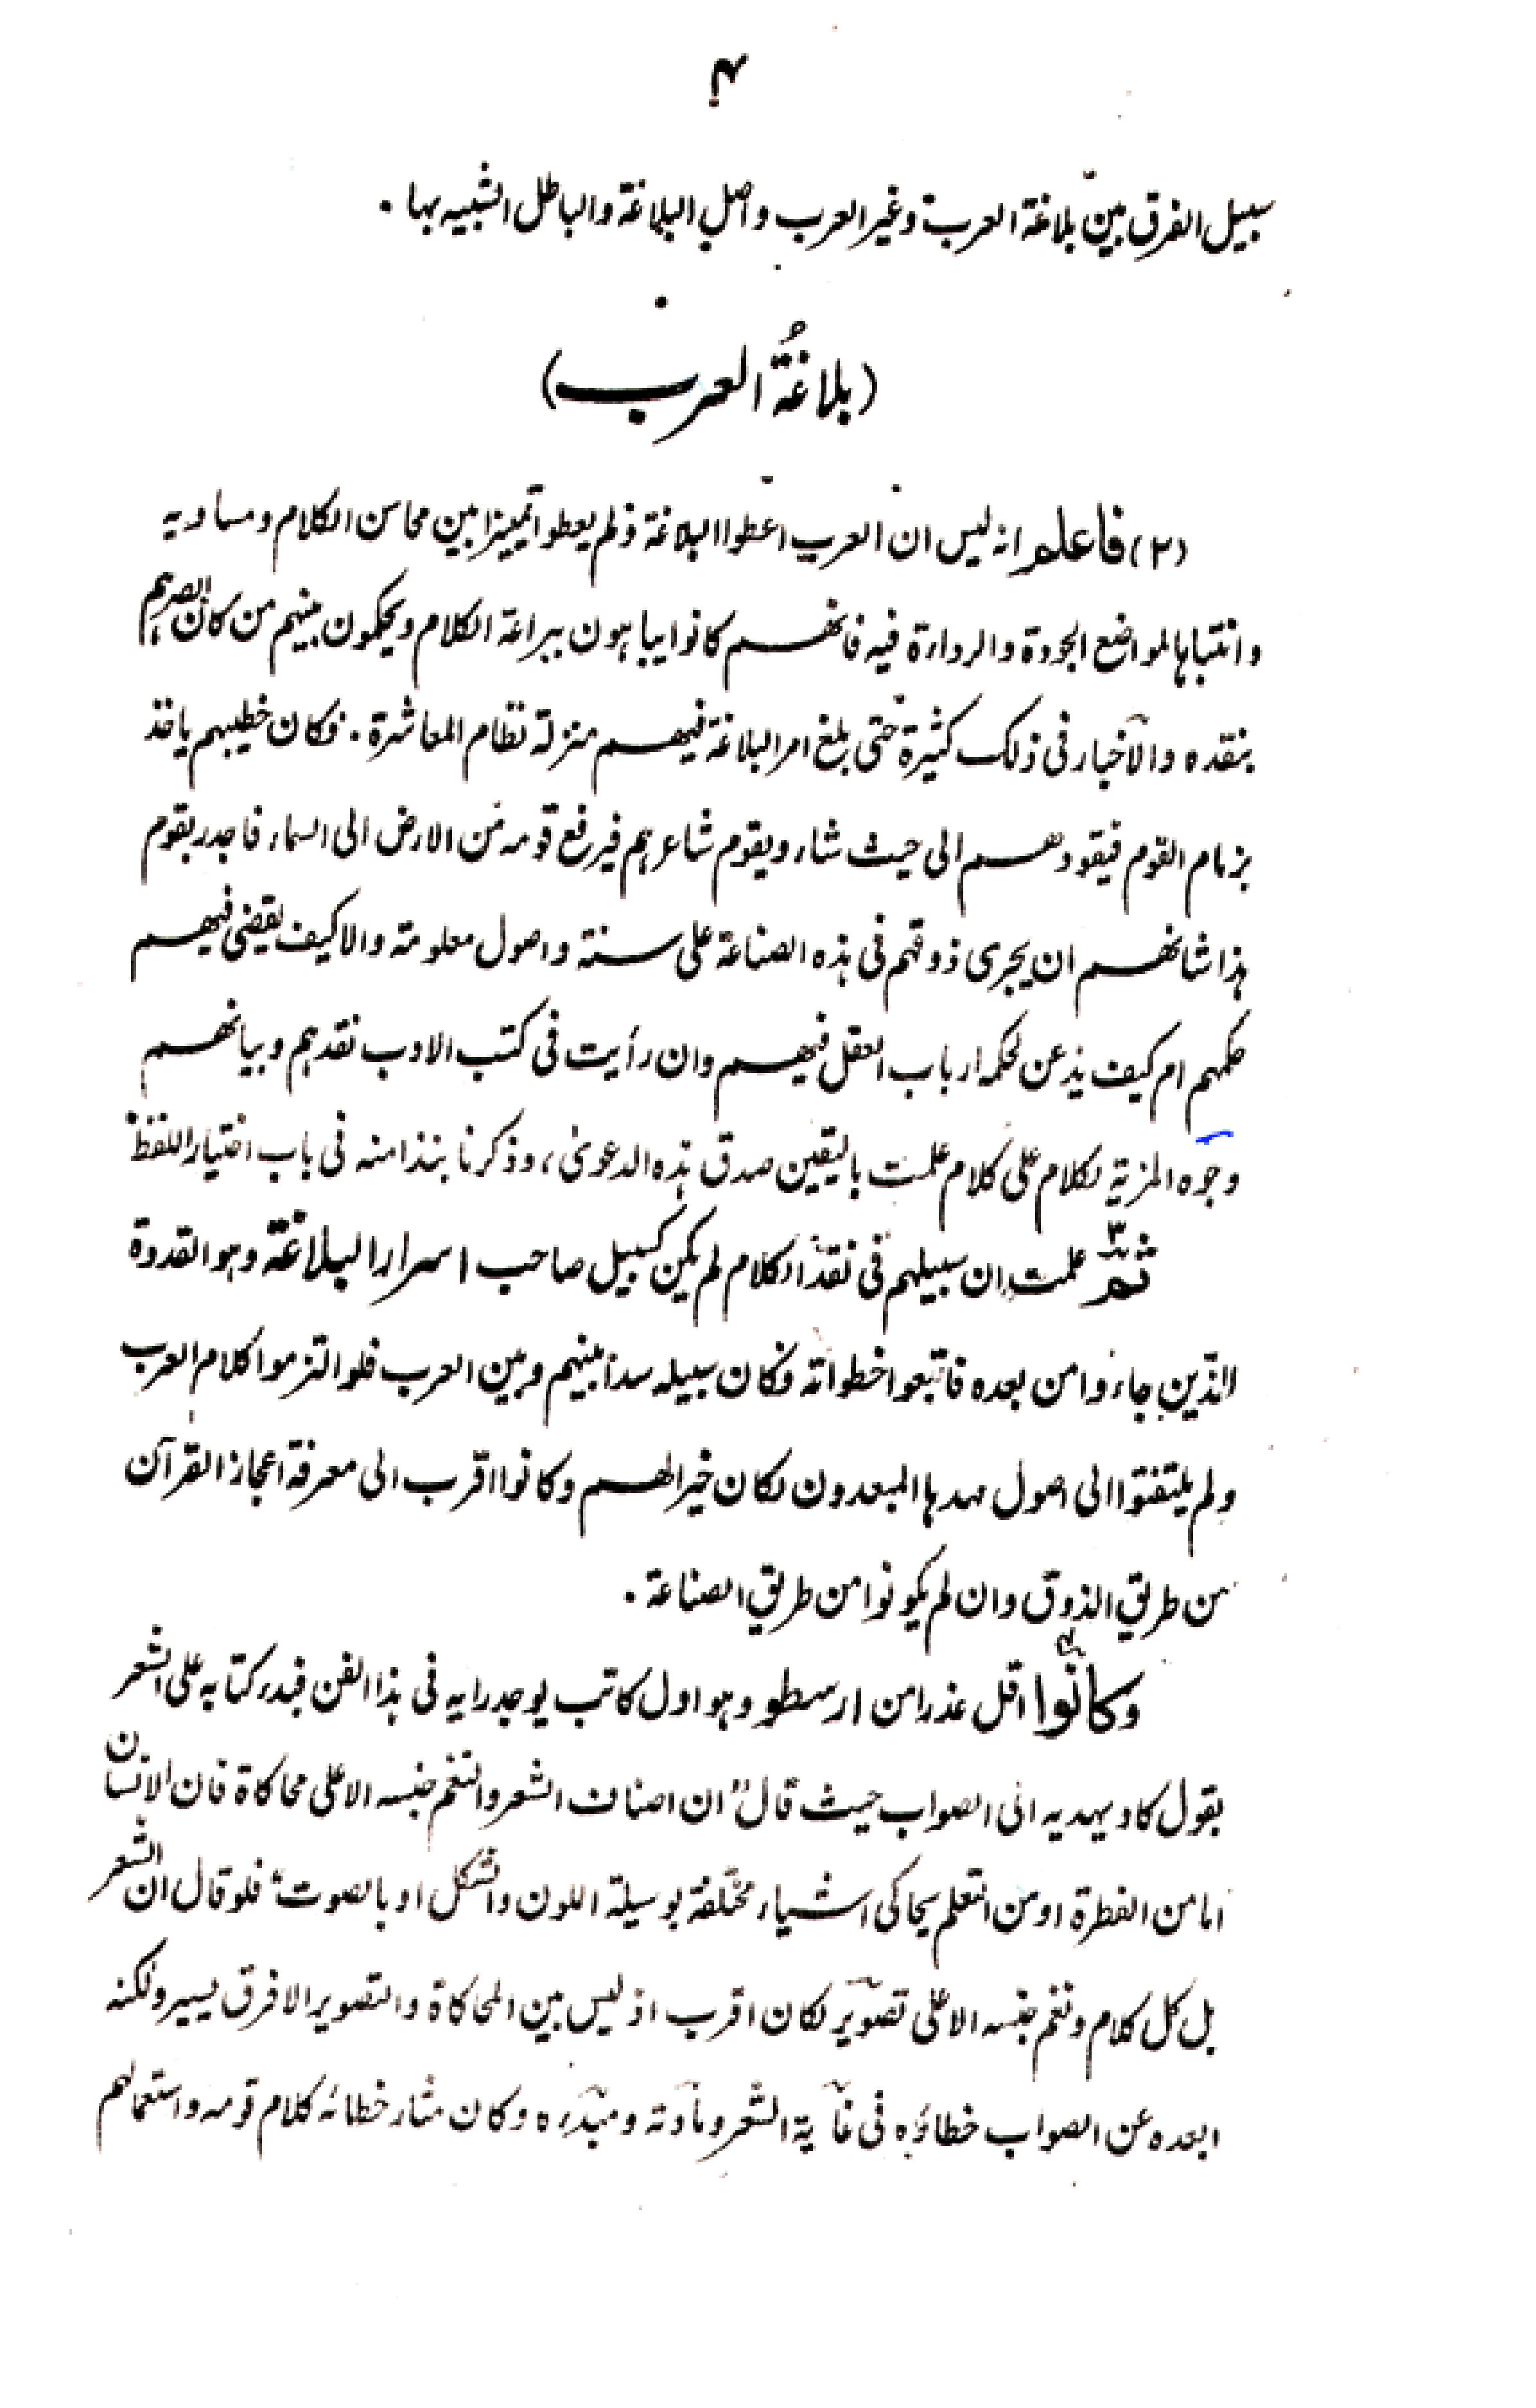 ۴
سبيل الفرق بين بلاغة العرب وغير العرب واصل البلاغة والباطل الشبيه بها .
(بلاغةُ العرب)
(۲) فاعلم انه ليس ان العرب اعطوا البلاغة ولم يعطوا تمييزا بين محاسن الكلام ومساويه
وانتباها لمواضع الجودة والرداءة فيه فانهم كانوا يباهون ببراعة الكلام ويحكمون بينهم من كان ابصرهم
بنقده والاخبار فى ذلك كثيرة حتى بلغ امر البلاغة فيهم منزلة نظام المعاشرة . فكان خطيبهم ياخذ
بزمام القوم فيقودهم الى حيث شاء ويقوم شاعرهم فيرفع قومه من الارض الى السماء فاجدر بقوم
هذا شانهم ان يجرى ذوقهم فى هذه الصناعة على سنة واصول معلومة والا كيف يقضى فيهم
حكمهم ام كيف يذعن لحكمه ارباب العقل فيهم وان رأيت فى كتب الادب نقدهم وبيانهم
وجوه المزية لكلام على كلام علمت باليقين صدق هذه الدعوىٰ، وذكرنا نبذا منه فى باب اختيار اللفظ
ثمّ۳ علمت ان سبيلهم فى نقد الكلام لم يكن كسبيل صاحب اسرار البلاغة وهو القدوة
الذين جاءوا من بعده فاتبعوا خطواته فكان سبيله سدا بينهم وبين العرب فلو التزموا كلام العرب
ولم يلتفتوا الى اصول مهدها المبعدون لكان خيرا لهم وكانوا اقرب الى معرفة اعجاز القرآن
من طريق الذوق وان لم يكونوا من طريق الصناعة .
وكانوا۴ اقل عذرا من ارسطو وهو اول كاتب يوجد رايه فى هذا الفن فبدء كتابه على الشعر
بقول كاد يهديه الى الصواب حيث قال "ان اصناف الشعر والتغم جنسه الاعلى محاكاة فان الانسان
اما من الفطرة او من التعلم يحاكى اشياء مختلفة بوسيلة اللون والشكل او بالصوت" فلو قال ان الشعر
بل كل كلام ونغم جنسه الاعلى تصوير لكان اقرب اذ ليس بين المحاكاة والتصوير الا فرق يسير ولكنه
ابعده عن الصواب خطاؤه فى غاية الشعر ومادته ومبدءه وكان مثار خطائه كلام قومه واستعمالهم